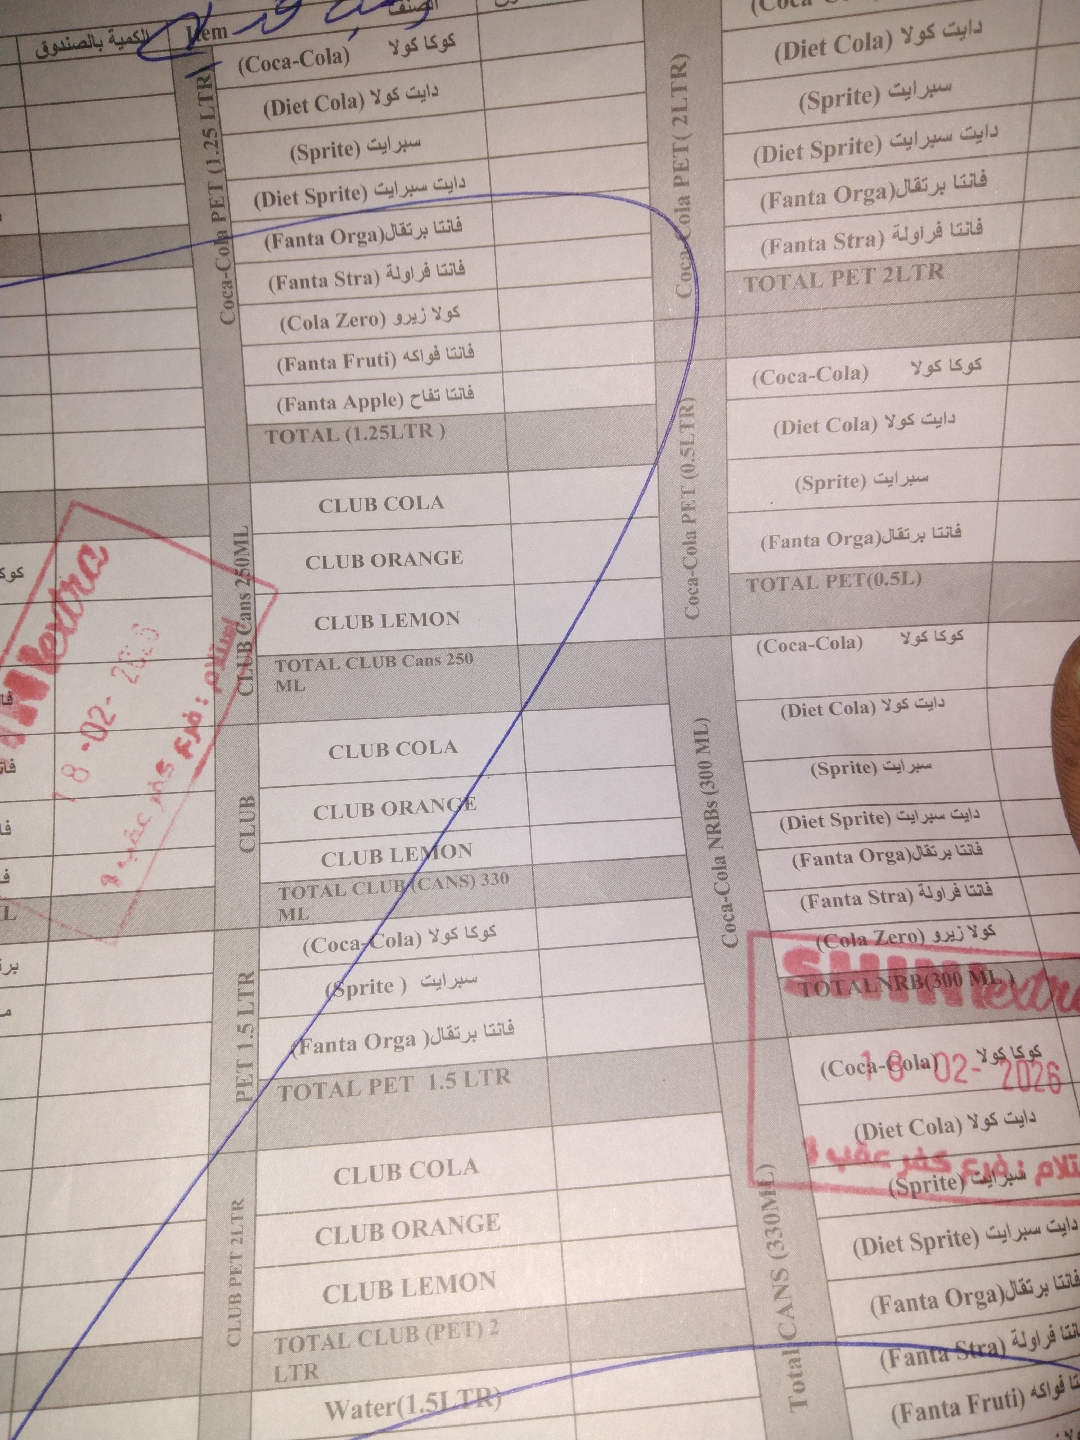 الكمية بالصندوق
Item
الصنف
Coca-Cola PET (1.25 LTR)
(Coca-Cola) كوكا كولا
(Diet Cola) دايت كولا
(Sprite) سبرايت
(Diet Sprite) دايت سبرايت
(Fanta Orga)فانتا برتقال
(Fanta Stra) فانتا فراولة
(Cola Zero) كولا زيرو
(Fanta Fruti) فانتا فواكه
(Fanta Apple) فانتا تفاح
TOTAL (1.25LTR )
CLUB Cans 250ML
CLUB COLA
CLUB ORANGE
CLUB LEMON
TOTAL CLUB Cans 250
ML
CLUB
CLUB COLA
CLUB ORANGE
CLUB LEMON
TOTAL CLUB (CANS) 330
ML
PET 1.5 LTR
(Coca-Cola) كوكا كولا
(Sprite ) سبرايت
(Fanta Orga )فانتا برتقال
TOTAL PET 1.5 LTR
CLUB PET 2LTR
CLUB COLA
CLUB ORANGE
CLUB LEMON
TOTAL CLUB (PET) 2
LTR
Water(1.5LTR)
Coca-Cola PET( 2LTR)
(Diet Cola) دايت كولا
(Sprite) سبرايت
(Diet Sprite) دايت سبرايت
(Fanta Orga)فانتا برتقال
(Fanta Stra) فانتا فراولة
TOTAL PET 2LTR
Coca-Cola PET (0.5LTR)
(Coca-Cola) كوكا كولا
(Diet Cola) دايت كولا
(Sprite) سبرايت
(Fanta Orga)فانتا برتقال
TOTAL PET(0.5L)
Coca-Cola NRBs (300 ML)
(Coca-Cola) كوكا كولا
(Diet Cola) دايت كولا
(Sprite) سبرايت
(Diet Sprite) دايت سبرايت
(Fanta Orga)فانتا برتقال
(Fanta Stra) فانتا فراولة
(Cola Zero) كولا زيرو
TOTALNRB(300 ML )
Total CANS (330ML)
(Coca-Cola) كوكا كولا
(Diet Cola) دايت كولا
(Sprite) سبرايت
(Diet Sprite) دايت سبرايت
(Fanta Orga)فانتا برتقال
(Fanta Stra) فانتا فراولة
(Fanta Fruti) فانتا فواكه
extra
18-02-
استلام : فرع كفر عقب
SHINI extra
18-02-2026
فرع كفر عقب